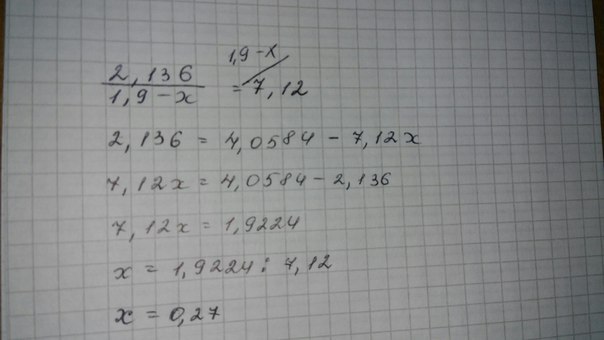 1,9-x
2,136/1,9-x = 7,12
2,136 = 4,0584 - 7,12x
7,12x = 4,0584 - 2,136
7,12x = 1,9224
x = 1,9224 : 7,12
x = 0,27